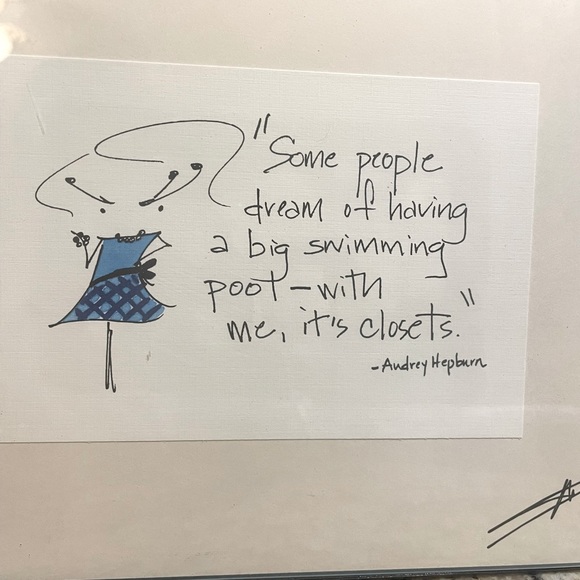 "Some people
dream of having
a big swimming
poot-with
me, it's closets."
-Audrey Hepburn